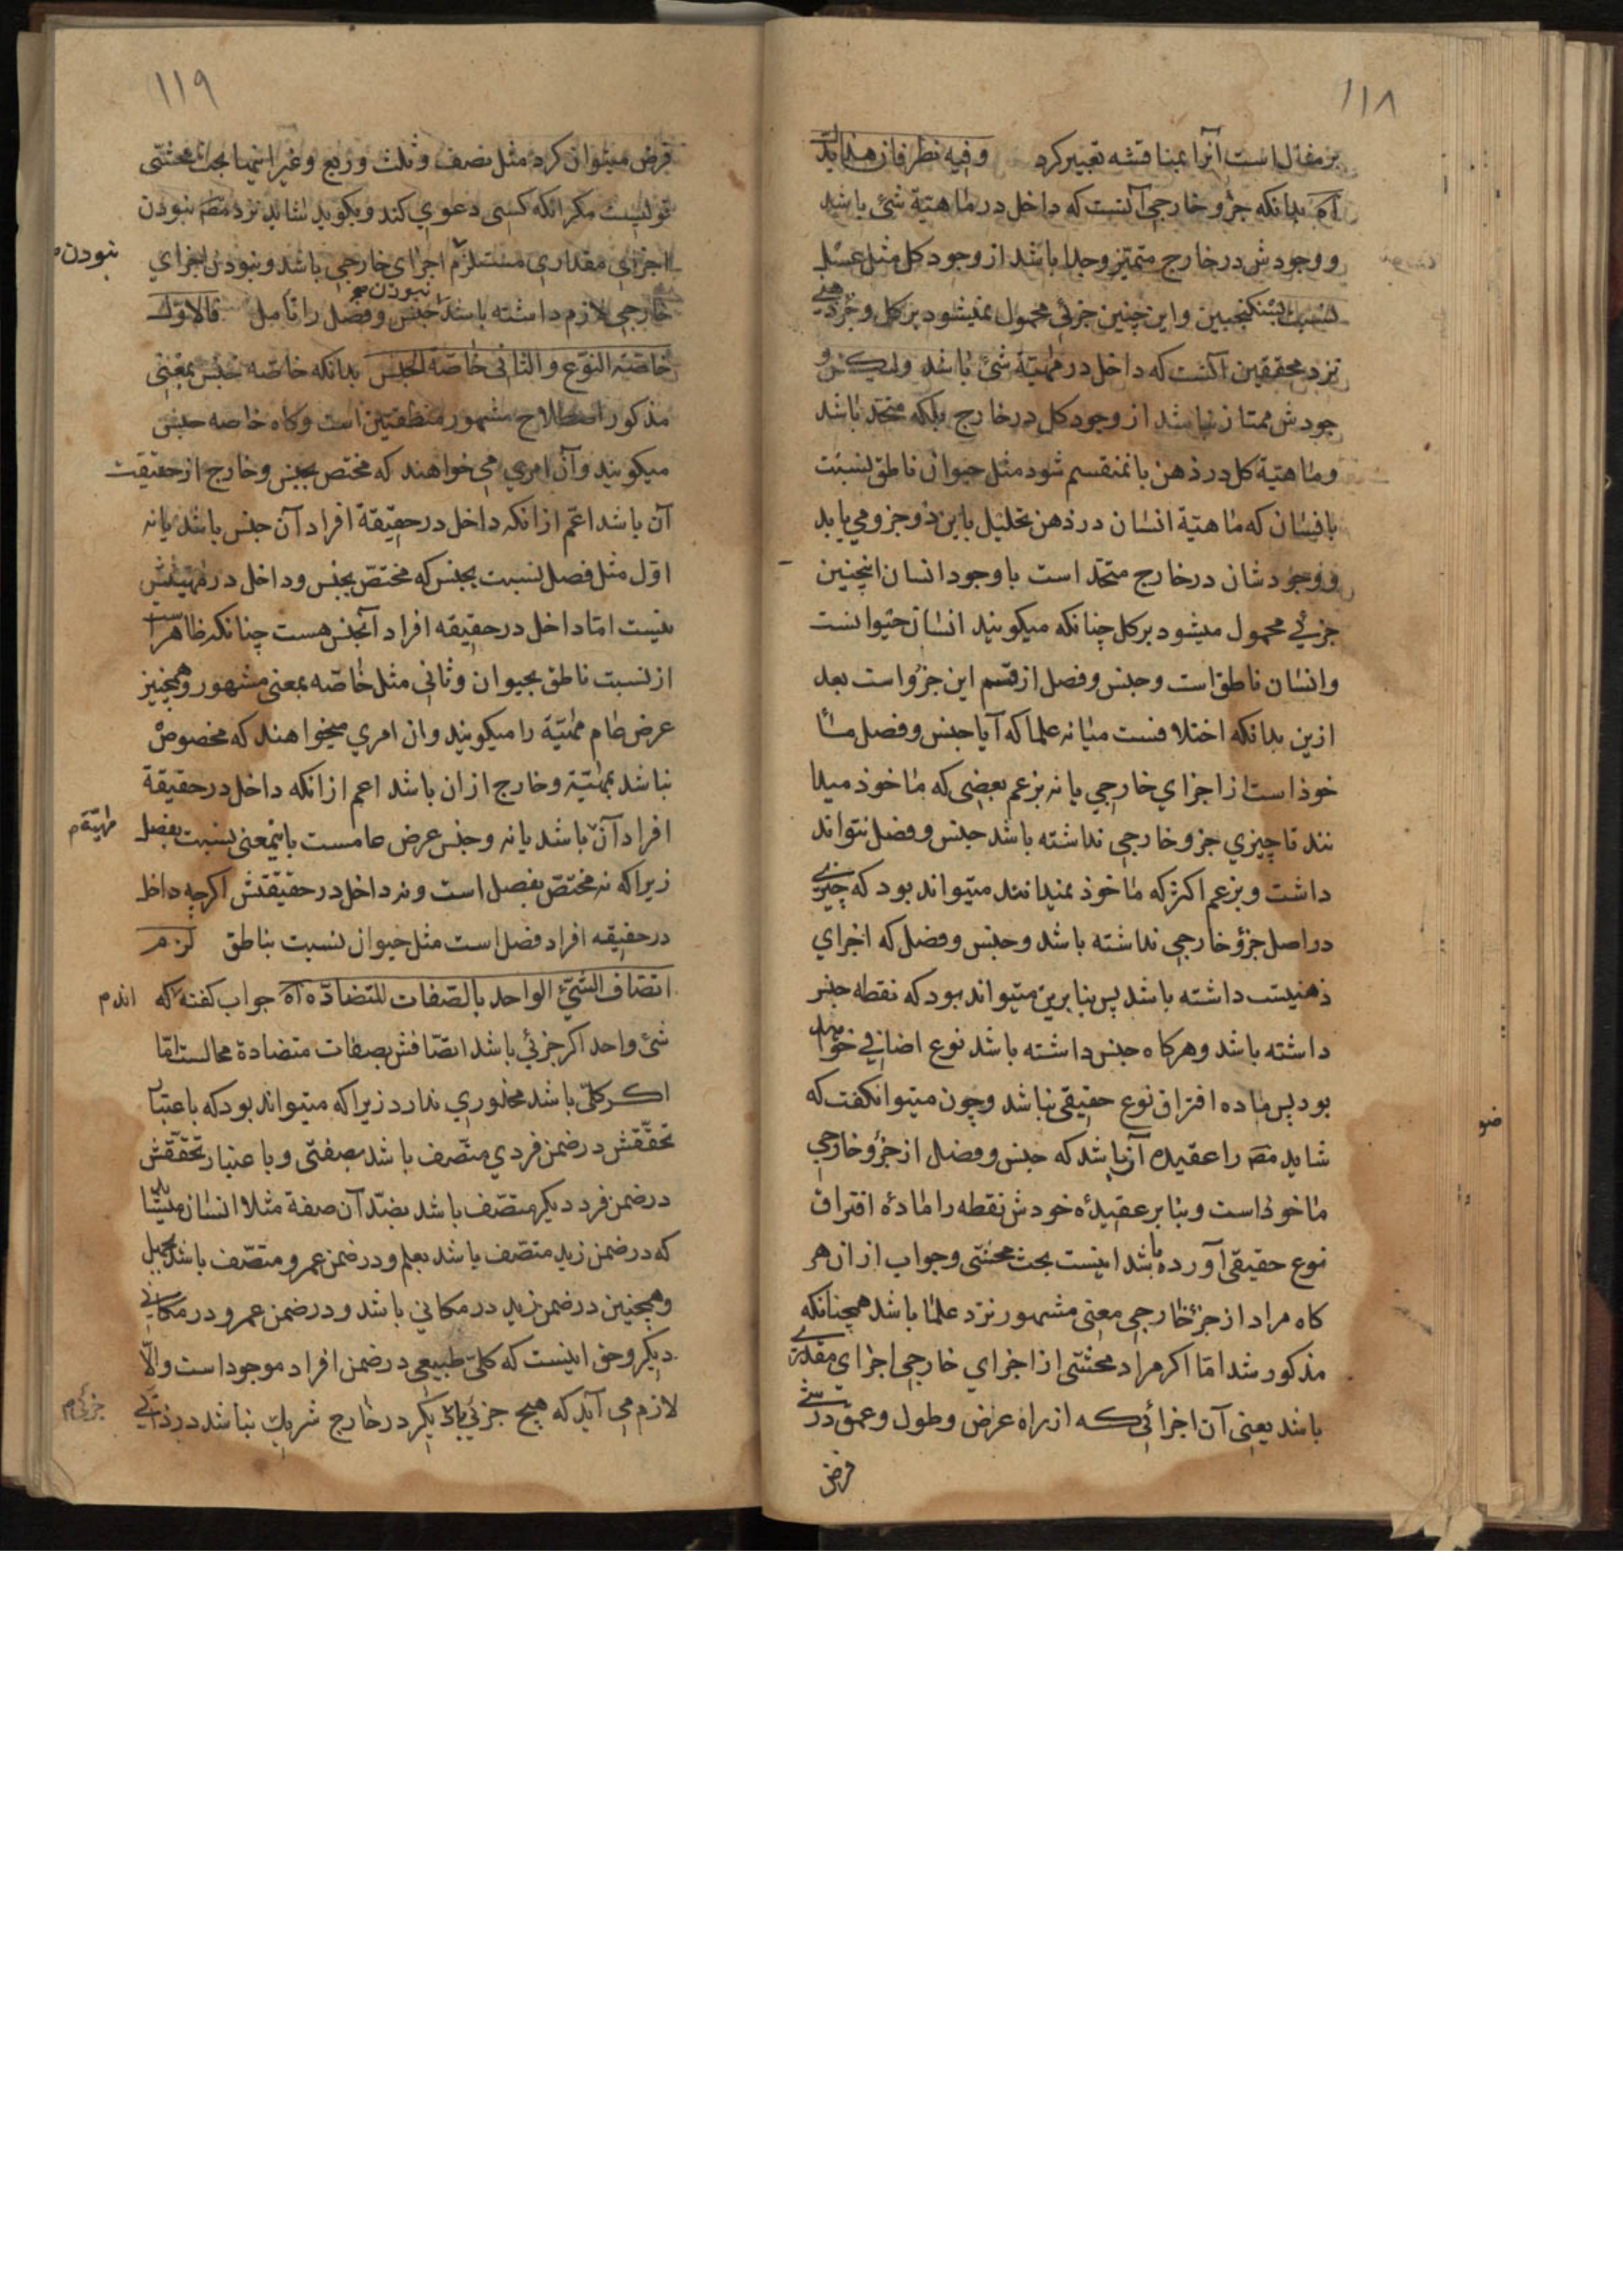 ١١٨
بر مغفل است آنرا بمناقشه تعبیر کرد وفیه نظر فان هذا
آه بدانکه جزو خارجی آنست که داخل در ماهیّة شئ باشد
و وجودش در خارج متمیّز وجدا باشد از وجود کل مثل عسل
نسبت بسکنجبین و این چنین جزئی محمول نمیشود بر کل و جزو ذهنی
نزد محققین آنست که داخل در مهیّة شئ باشد ولیکن و
جودش ممتاز نباشد از وجود کل در خارج بلکه متحد باشد
و ماهیّة کل در ذهن بانمنقسم شود مثل حیوان ناطق نسبت
بانسان که ماهیّة انسان در ذهن تحلیل باین دو جزو می یابد
و وجودشان در خارج متحد است با وجود انسان اینچنین
جزئی محمول میشود بر کل چنانکه میکویند انسان حیوانست
وانسان ناطق است و جنس و فصل از قسم این جزو است بعد
ازین بدانکه اختلافست میانه علما که آیا جنس و فصل ما
خوذ است از اجزای خارجی یا نه بزعم بعضی که ماخوذ میدا
نند تا چیزی جزو خارجی نداشته باشد جنس و فصل نتواند
داشت و بزعم اکثر که ماخوذ نمیدانند میتواند بود که چیزی
در اصل جزو خارجی نداشته باشد و جنس و فصل که اجزای
ذهنیست داشته باشد پس بنابرین میتواند بود که نقطه جنس
داشته باشد و هرکاه جنس داشته باشد نوع اضافی خواهد
بود پس ماده افتراق نوع حقیقی نباشد و چون میتوانکفت که
شاید مصـ را عقیده آن باشد که جنس و فصل از جزو خارجی
ماخوذ است و بنابر عقیدهٔ خودش نقطه را مادهٔ افتراق
نوع حقیقی آورده باشد اینست بحث محشی و جواب از ان هر
کاه مراد از جزء خارجی معنی مشهور نزد علما باشد همچنانکه
مذکور شد امّا اکر مراد محشّی از اجزای خارجی اجزای مقداری
باشد یعنی آن اجزائی که از راه عرض و طول و عمق در شئ
فرض
١١٩
فرض میتوان کرد مثل نصف و ثلث و ربع و غیر اینها بحث محشّی
قویست مکر انکه کسی دعوی کند و بکوید شاید نزد مصـ نبودن
اجزای مقداری مستلزم اجزای خارجی باشد و نبودن اجزای نبودن
خارجی لازم داشته باشد نبودن جنس و فصل را تأمل فالاوّل
خاصّة النوع والثانی خاصّة الجنس بدانکه خاصّه جنس بمعنی
مذکور اصطلاح مشهور منطقیین است و کاه خاصه جنس
میکویند و آن امری می خواهند که مختص بجنس و خارج از حقیقت
آن باشد اعّم از انکه داخل در حقیقة افراد آن جنس باشد یا نه
اوّل مثل فصل نسبت بجنس که مختصّ بجنس و داخل در مهیّتش
نیست امّا داخل در حقیقه افراد آنجنس هست چنانکه ظاهر است
از نسبت ناطق بحیوان و ثانی مثل خاصّه بمعنی مشهور و همچنین
عرض عام مهیّة را میکویند و ان امری میخواهند که مخصوص
نباشد بمهیّة و خارج از ان باشد اعم از انکه داخل در حقیقة
افراد آن باشد یا نه و جنس عرض عامست باینمعنی نسبت بفصل مهیّة
زیراکه نه مختصّ بفصل است و نه داخل در حقیقتش اکرچه داخل
در حقیقه افراد فصل است مثل حیوان نسبت بناطق لزم
اتصاف الشیء الواحد بالصّفات المتضادّه آه جواب کفته که اند
شئ واحد اکر جزئی باشد اتصّافش بصفات متضادة محالست امّا
اکر کلّی باشد محذوری ندارد زیراکه میتواند بود که باعتبار
تحقّقش در ضمن فردی متّصف باشد بصفتی و باعتبار تحقّقش
در ضمن فرد دیکر متصّف باشد بضدّ آن صفة مثلا انسان میشاید
که در ضمن زید متصّف باشد بعلم و در ضمن عمرو متصّف باشد بجهل
و همچنین در ضمن زید در مکانی باشد و در ضمن عمرو در مکانی
دیکر و حق اینست که کلّی طبیعی در ضمن افراد موجود است والّا
لازم می آید که هیچ جزئی با دیکر در خارج شریك نباشد در ذاتی جزئی